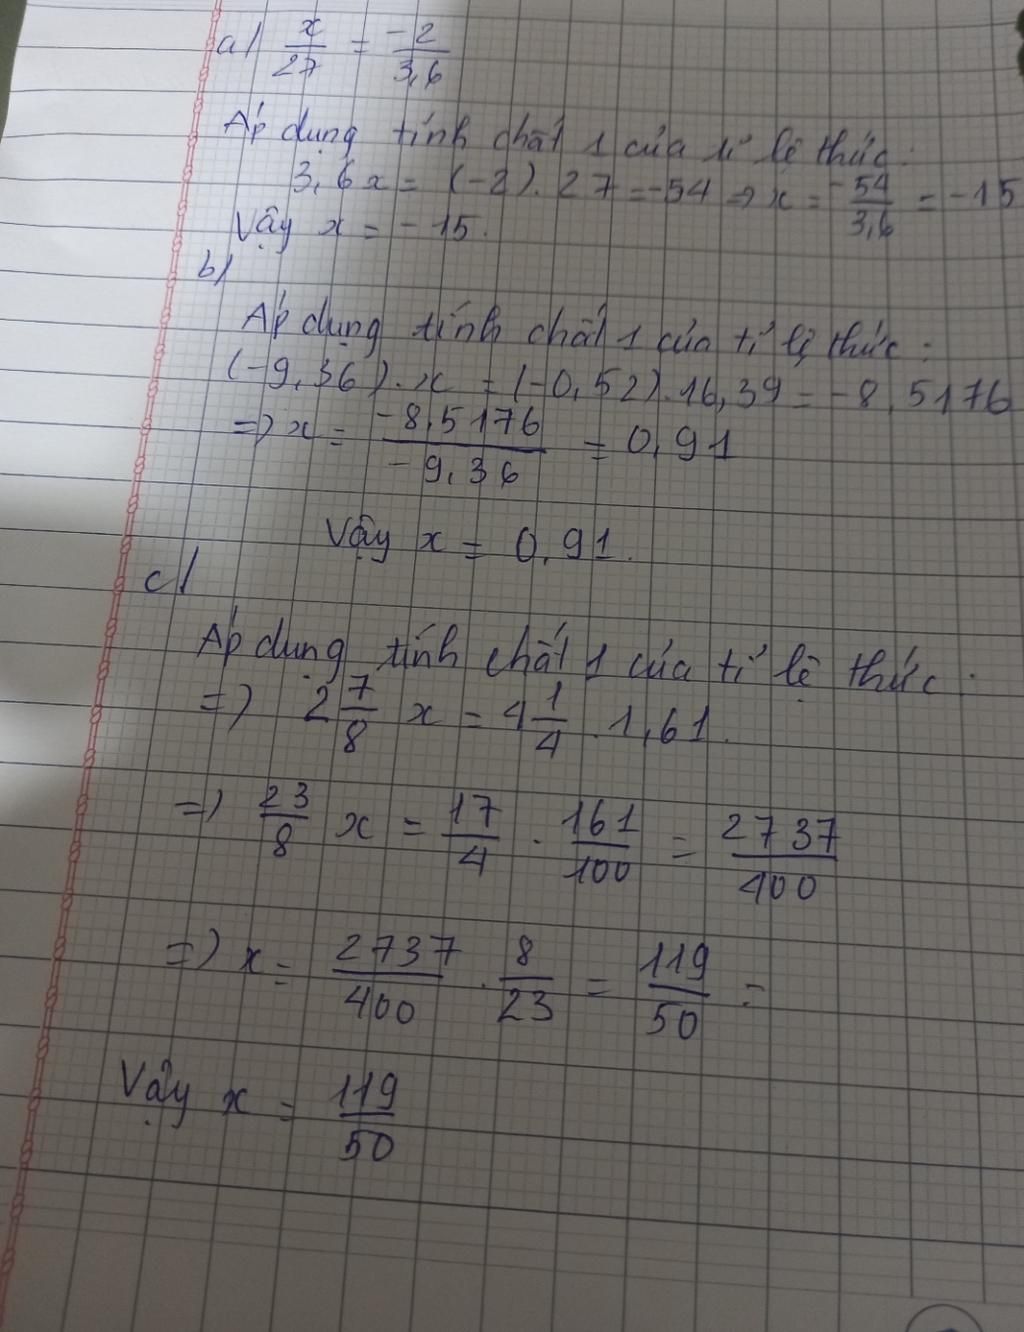 a) x/27 = -2/3,6
Áp dụng tính chất 1 của tỉ lệ thức:
3,6x = (-2).27 = -54 => x = -54/3,6 = -15
Vậy x = -15.
b)
Áp dụng tính chất 1 của tỉ lệ thức:
(-9,36).x = (-0,52).16,39 = -8,5176
=> x = -8,5176/-9,36 = 0,91
Vậy x = 0,91.
c)
Áp dụng tính chất 1 của tỉ lệ thức.
=> 2 7/8 x = 4 1/4 . 1,61.
=> 23/8 x = 17/4 . 161/100 = 2737/400
=> x = 2737/400 . 8/23 = 119/50 =
Vậy x = 119/50